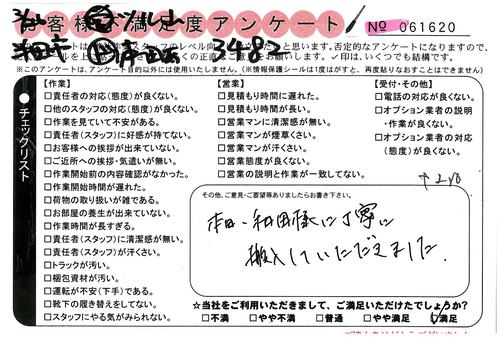 お客様満足度アンケート
№ 061620
3483
※このアンケートは、アンケート目的以外には使用いたしません。(※情報保護シールは1度がすと、再度貼りなおすことはできません)
チェックリスト
【作業】
□責任者の対応(態度)が良くない。
□他のスタッフの対応(態度)が良くない。
□作業を見ていて不安がある。
□責任者(スタッフ)に好感が持てない。
□お客様への挨拶が出来ていない。
□ご近所への挨拶・気遣いが無い。
□作業開始前の内容確認がなかった。
□作業開始時間が遅れた。
□荷物の取り扱いが雑である。
□お部屋の養生が出来ていない。
□作業時間が長すぎる。
□責任者(スタッフ)に清潔感が無い。
□責任者(スタッフ)が汗くさい。
□トラックが汚い。
□梱包資材が汚い。
□運転が不安(下手)である。
□靴下の履き替えをしてない。
□スタッフにやる気がみられない。
【営業】
□見積もり時間に遅れた。
□見積もり時間が長い。
□営業マンに清潔感が無い。
□営業マンが煙草くさい。
□営業マンが汗くさい。
□営業態度が良くない。
□営業の説明と作業が一致してない。
【受付・その他】
□電話の対応が良くない。
□オプション業者の説明
・作業が良くない。
□オプション業者の対応
(態度)が良くない。
その他、ご意見・ご要望等ありましたらお書き下さい。
本日、和田様に丁寧に
搬入していただきました。
☆当社をご利用いただきまして、ご満足いただけたでしょうか?
□不満 □やや不満 □普通 □やや満足 ☑満足